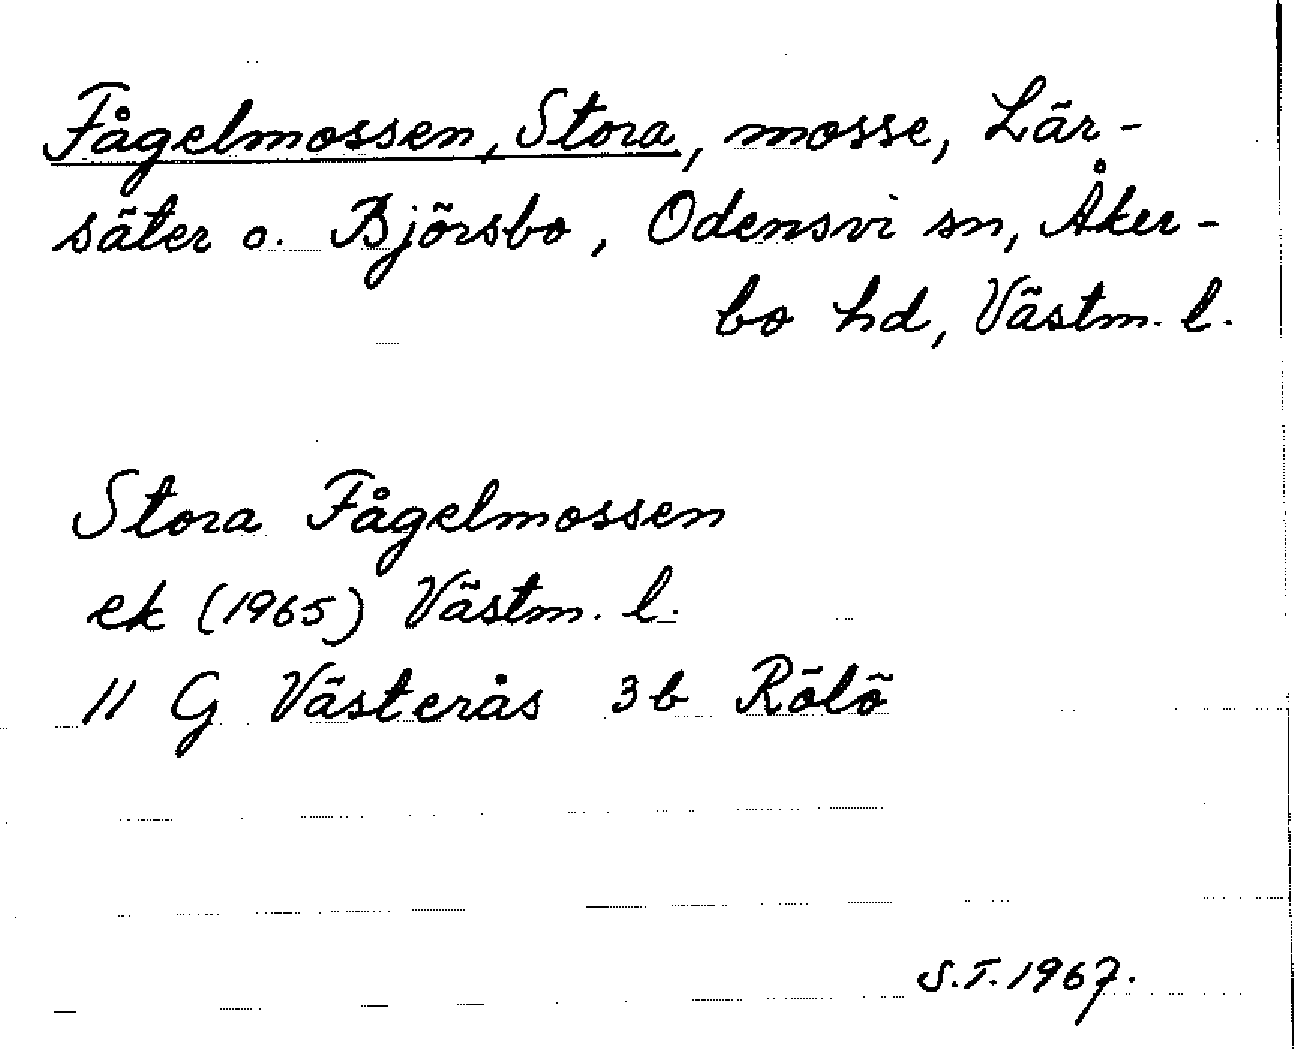 Fågelmossen, Stora, mosse, Lär-
säter o. Björsbo, Odensvi sn, Åker-
bo hd, Västm. l.
Stora Fågelmossen
ek (1965) Västm. l.
11 G Västerås 3b Rölö
S.T. 1967.